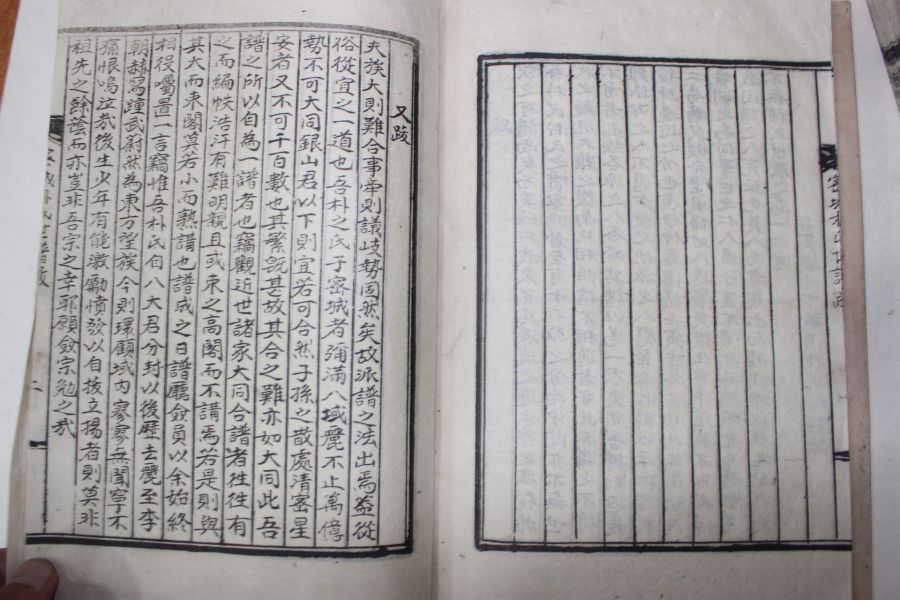 又跋
夫族大則難合事牽則議歧勢固然矣故派譜之法出焉蓋從
俗從宜之一道也吾朴之氏于密城者彌滿八域麗不止萬億
勢不可大同銀山君以下則宜若可合然子孫之散處清密星
安者又不可千百數也其繁旣甚故其合之難亦如大同此吾
譜之所以自為一譜者也竊觀近世諸家大同合譜者往往有
之而編帙浩汗有難明親且或束之高閣而不講焉若是則與
其大而束閣莫若小而熟講也譜成之日譜廳僉員以余始終
相役囑置一言竊惟吾朴氏自八大君分封以後歷去麗至李
朝赫舄踵武蔚然為東方望族今則環顧域內寥寥無聞寧不
痛恨嗚泣哉後生少年有能激勵憤發以自拔立揚者則莫非
祖先之餘蔭而亦豈非吾宗之幸耶願僉宗勉之哉